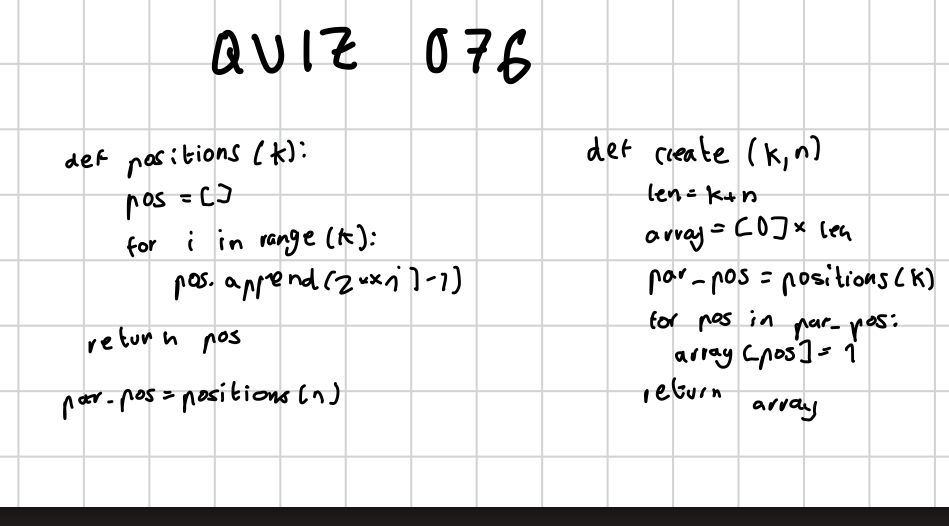 QUIZ 076
def positions (k):
pos = []
for i in range (k):
pos. append (2**i)-1)
return pos
par-pos = positions (n)
def create (k,n)
len = k+n
array = [0] * len
par-pos = positions (k)
for pos in par-pos:
array [pos] = 1
return array